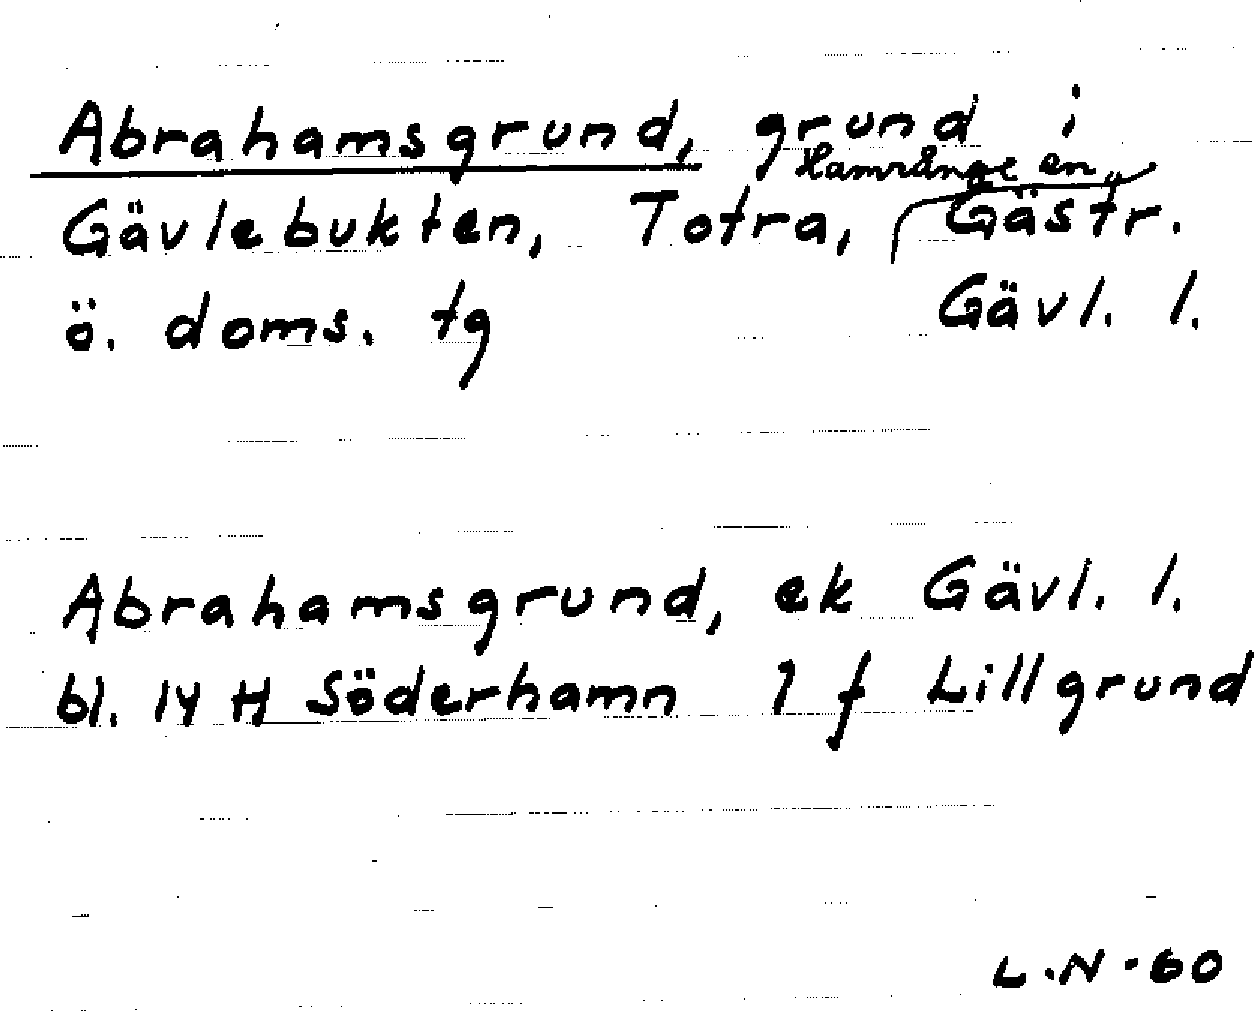 Abrahamsgrund, grund i
Hamrånge sn,
Gävlebukten, Totra, Gästr.
ö. doms. tg Gävl. l.
Abrahamsgrund, ek Gävl. l.
bl. 14 H Söderhamn 7 f Lillgrund
L.N-60